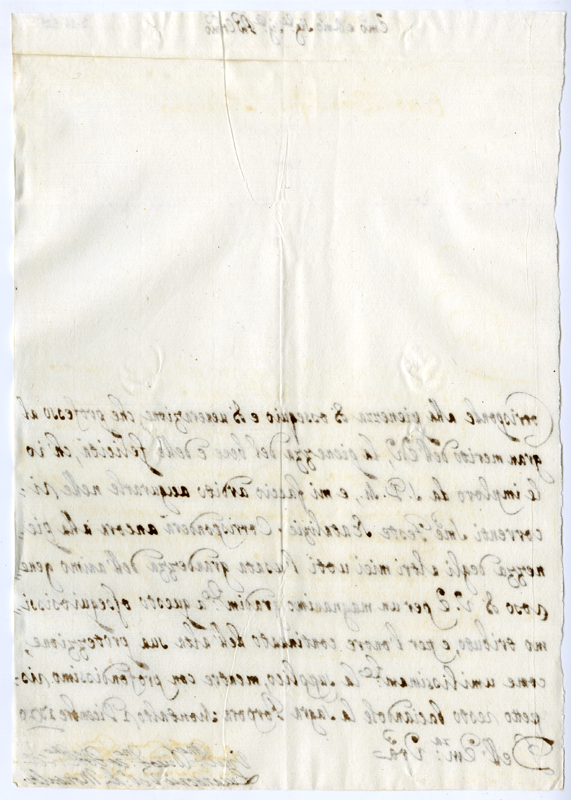 Corrisponde alla pienezza di ossequio e di venerazione, che professo al
gran merito dell'E.V., la pienezza del bene e delle felicità, ch'io
le imploro da S.D.M., e mi faccio ardito augurarle nelle ri:
correnti Sme Feste Natalizie. Corrisponderà ancora alla pie
nezza degli altri miei voti l'usata grandezza dell'animo gene
roso di V.E. per un magnanimo gradim.to a questo ossequiosissi
mo tributo, e per l'onore continuato dell'alta sua protezzione,
come umilissimam.te la supplico, mentre con profondissimo ris:
petto resto baciandole la Sagra Porpora. Montalto Dicembre 1730
Dell'Em.za V.ra